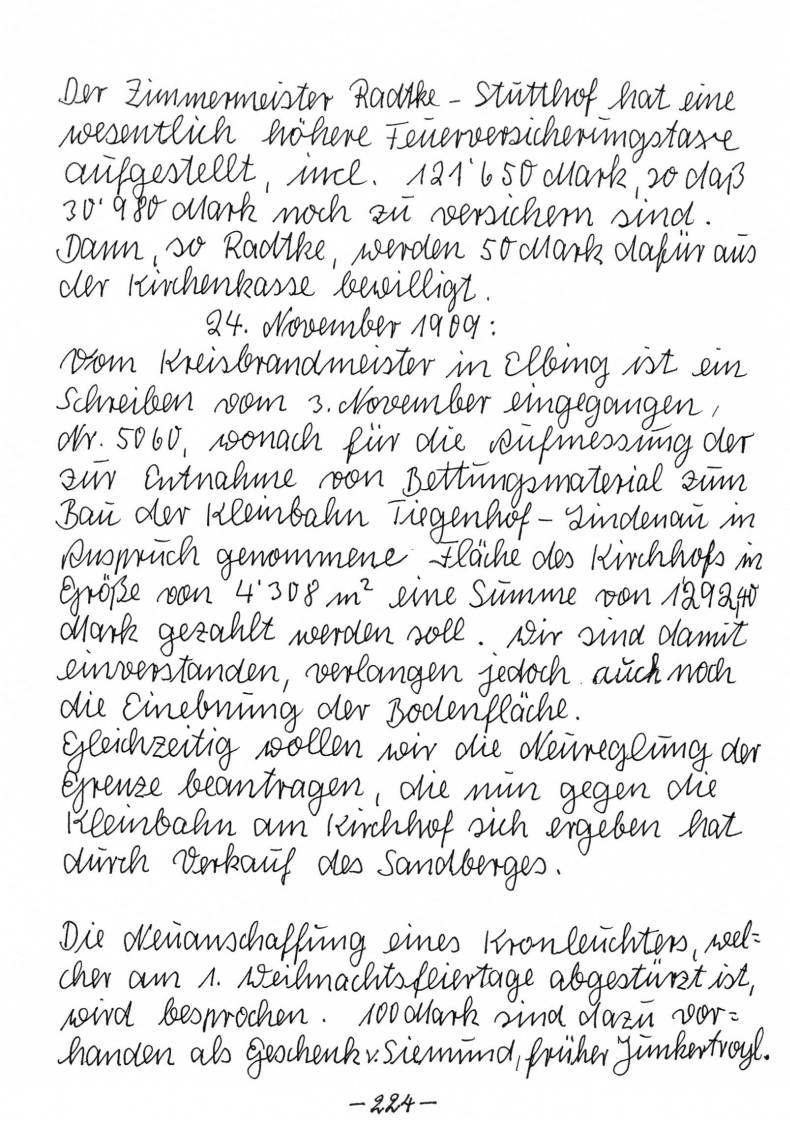 Der Zimmermeister Radtke - Stutthof hat eine
wesentlich höhere Feuerversicherungstaxe
aufgestellt, incl. 121'650 Mark, so daß
30'980 Mark noch zu versichern sind.
Dann, so Radtke, werden 50 Mark dafür aus
der Kirchenkasse bewilligt.
24. November 1909:
Vom Kreisbrandmeister in Elbing ist ein
Schreiben vom 3. November eingegangen,
Nr. 5060, wonach für die Aufmessung der
zur Entnahme von Bettungsmaterial zum
Bau der Kleinbahn Tiegenhof - Lindenau in
Anspruch genommene Fläche des Kirchhofs in
Größe von 4'308 m² eine Summe von 1'292,40
Mark gezahlt werden soll. Wir sind damit
einverstanden, verlangen jedoch auch noch
die Einebnung der Bodenfläche.
Gleichzeitig wollen wir die Neureglung der
Grenze beantragen, die nun gegen die
Kleinbahn am Kirchhof sich ergeben hat
durch Verkauf des Sandberges.
Die Neuanschaffung eines Kronleuchters, wel=
cher am 1. Weihnachtsfeiertage abgestürzt ist,
wird besprochen. 100 Mark sind dazu vor=
handen als Geschenk v. Siemund, früher Junkertroyl.
- 224 -